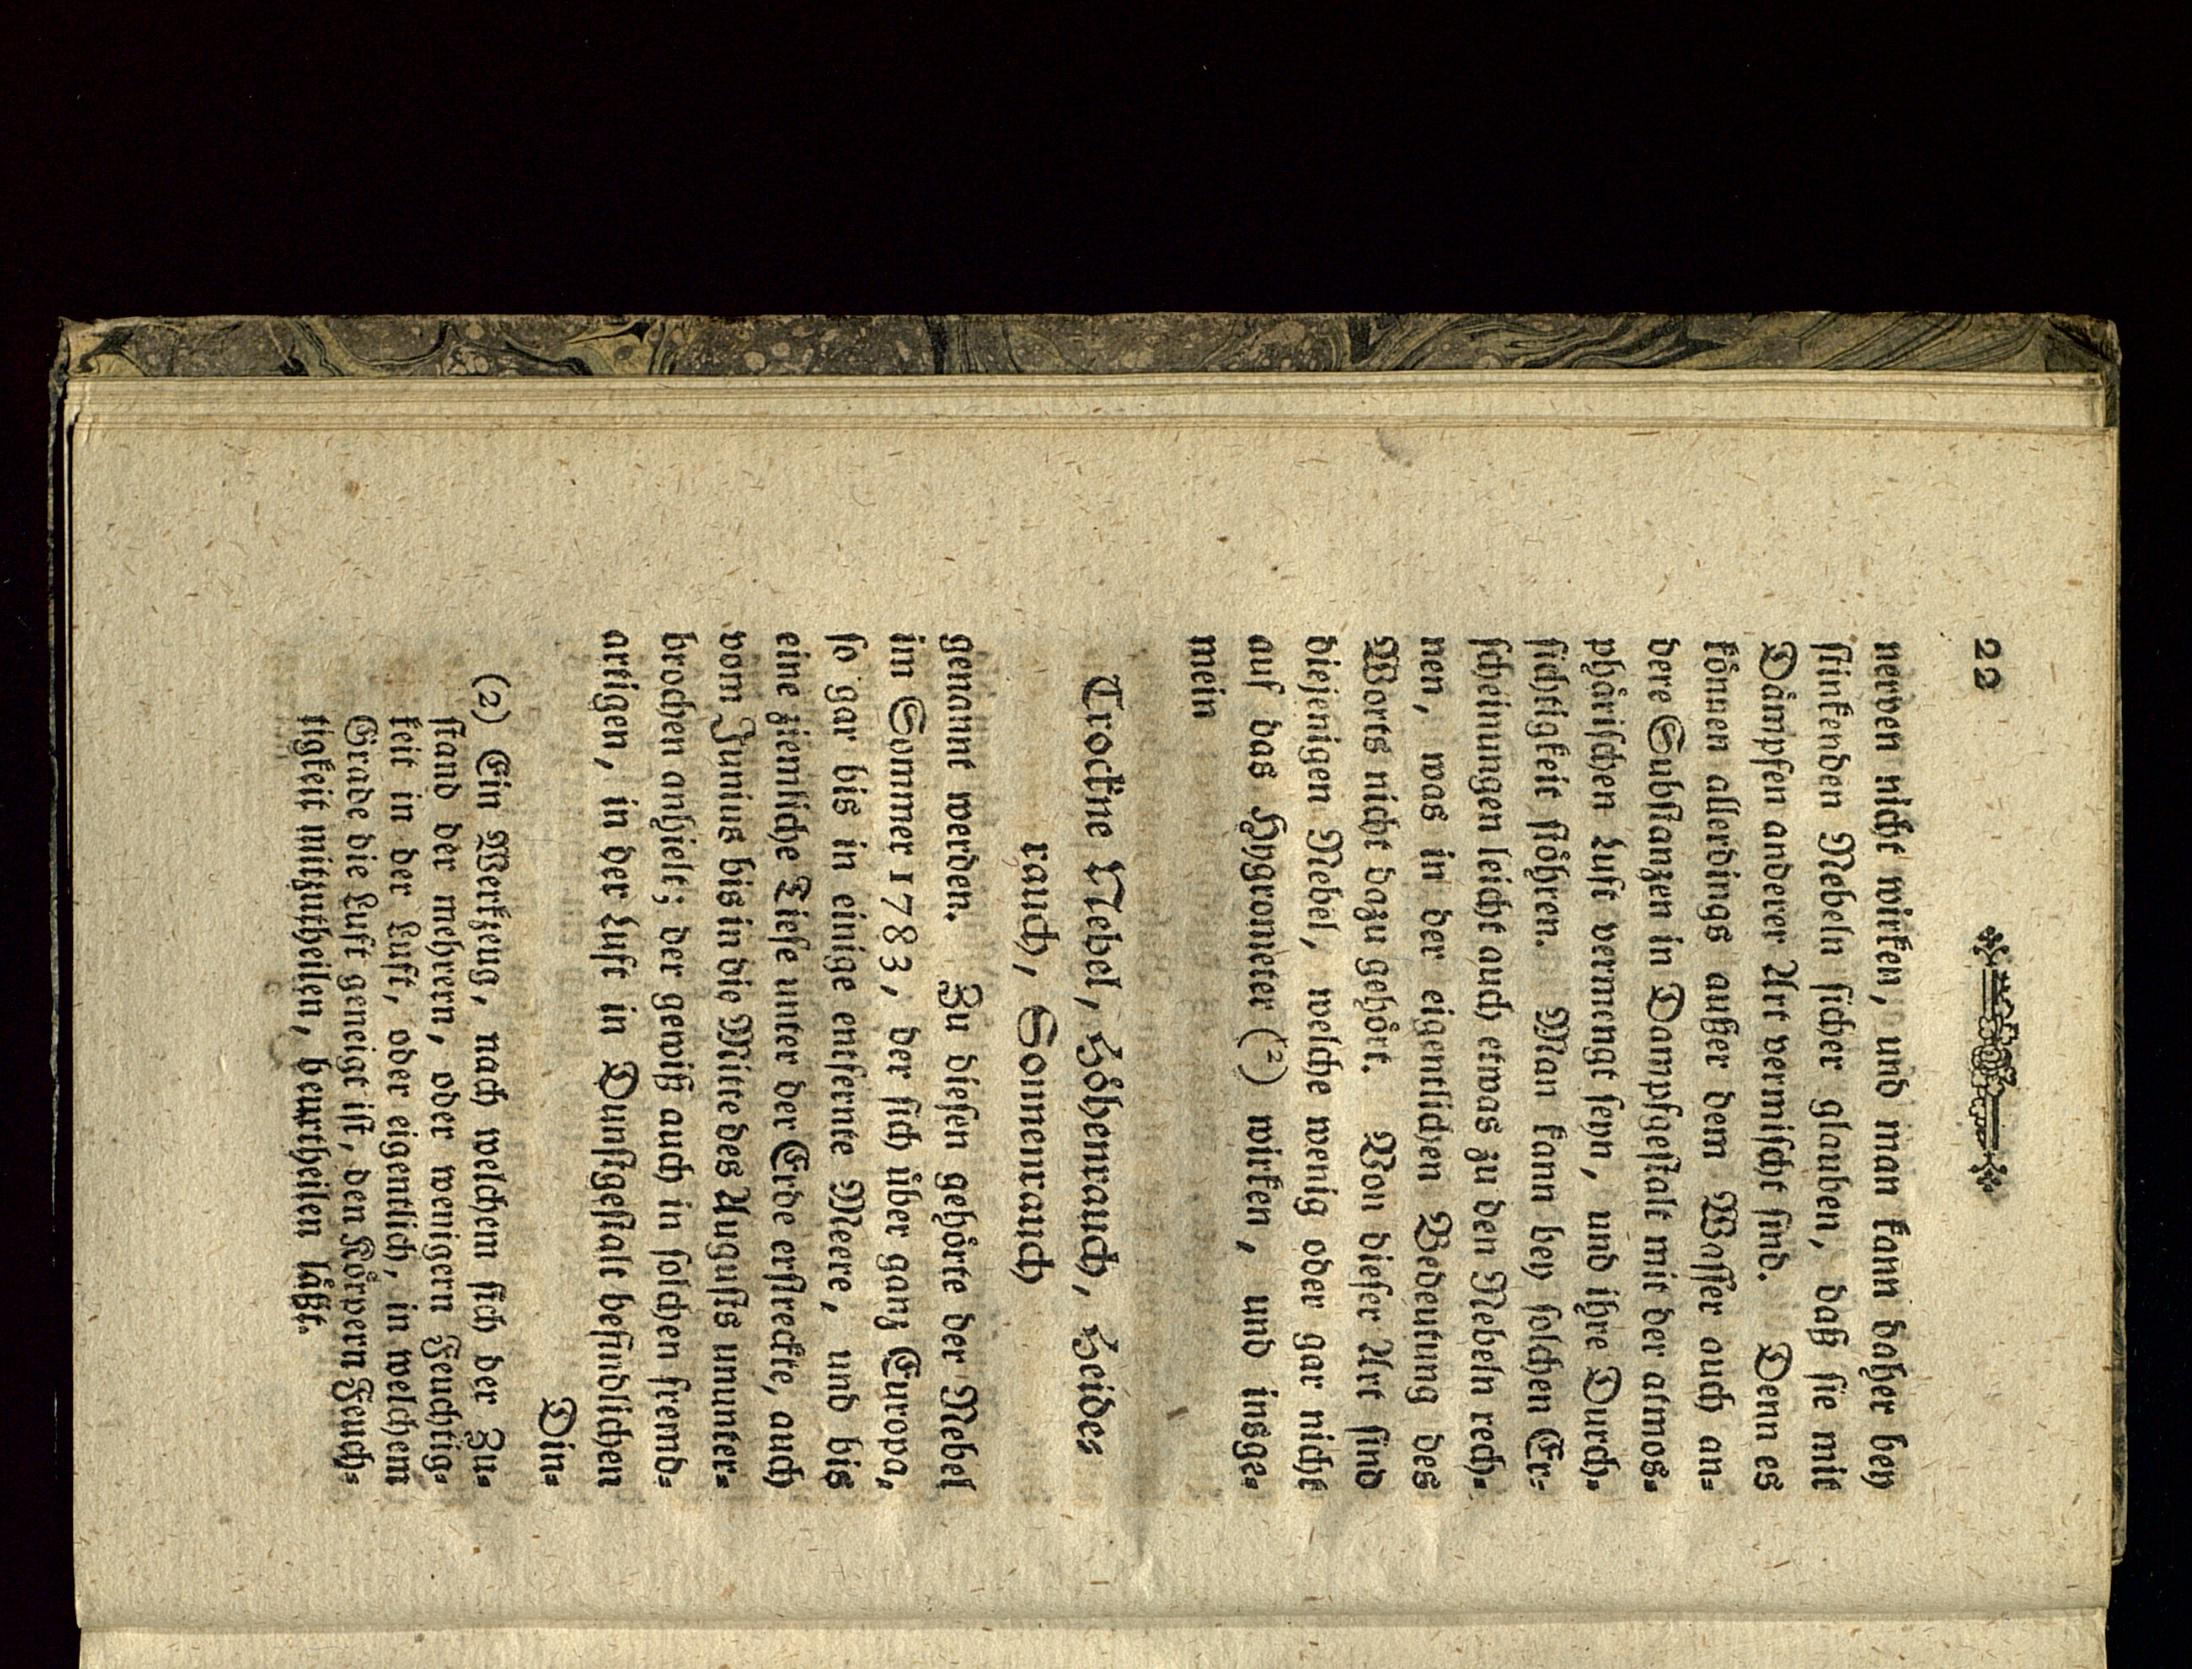 22
nerven nicht wirken, und man kann daher bey
stinkenden Nebeln sicher glauben, daß sie mit
Dämpfen anderer Art vermischt sind. Denn es
können allerdings außer dem Wasser auch an-
dere Substanzen in Dampfgestalt mit der atmos-
phärischen Luft vermengt seyn, und ihre Durch-
sichtigkeit stöhren. Man kann bey solchen Er-
scheinungen leicht auch etwas zu den Nebeln rech-
nen, was in der eigentlichen Bedeutung des
Worts nicht dazu gehört. Von dieser Art sind
diejenigen Nebel, welche wenig oder gar nicht
auf das Hygrometer (²) wirken, und insge-
mein
Trockne Nebel, Höhenrauch, Heide-
rauch, Sonnenrauch
genannt werden. Zu diesen gehörte der Nebel
im Sommer 1783, der sich über ganz Europa,
so gar bis in einige entfernte Meere, und bis
eine ziemliche Tiefe unter der Erde erstreckte, auch
vom Junius bis in die Mitte des Augusts ununter-
brochen anhielt; der gewiß auch in solchen fremd-
artigen, in der Luft in Dunstgestalt befindlichen
Din-
(2) Ein Werkzeug, nach welchem sich der Zu-
stand der mehrern, oder wenigern Feuchtig-
keit in der Luft, oder eigentlich, in welchem
Grade die Luft geneigt ist, den Körpern Feuch-
tigkeit mitzutheilen, beurtheilen läßt.